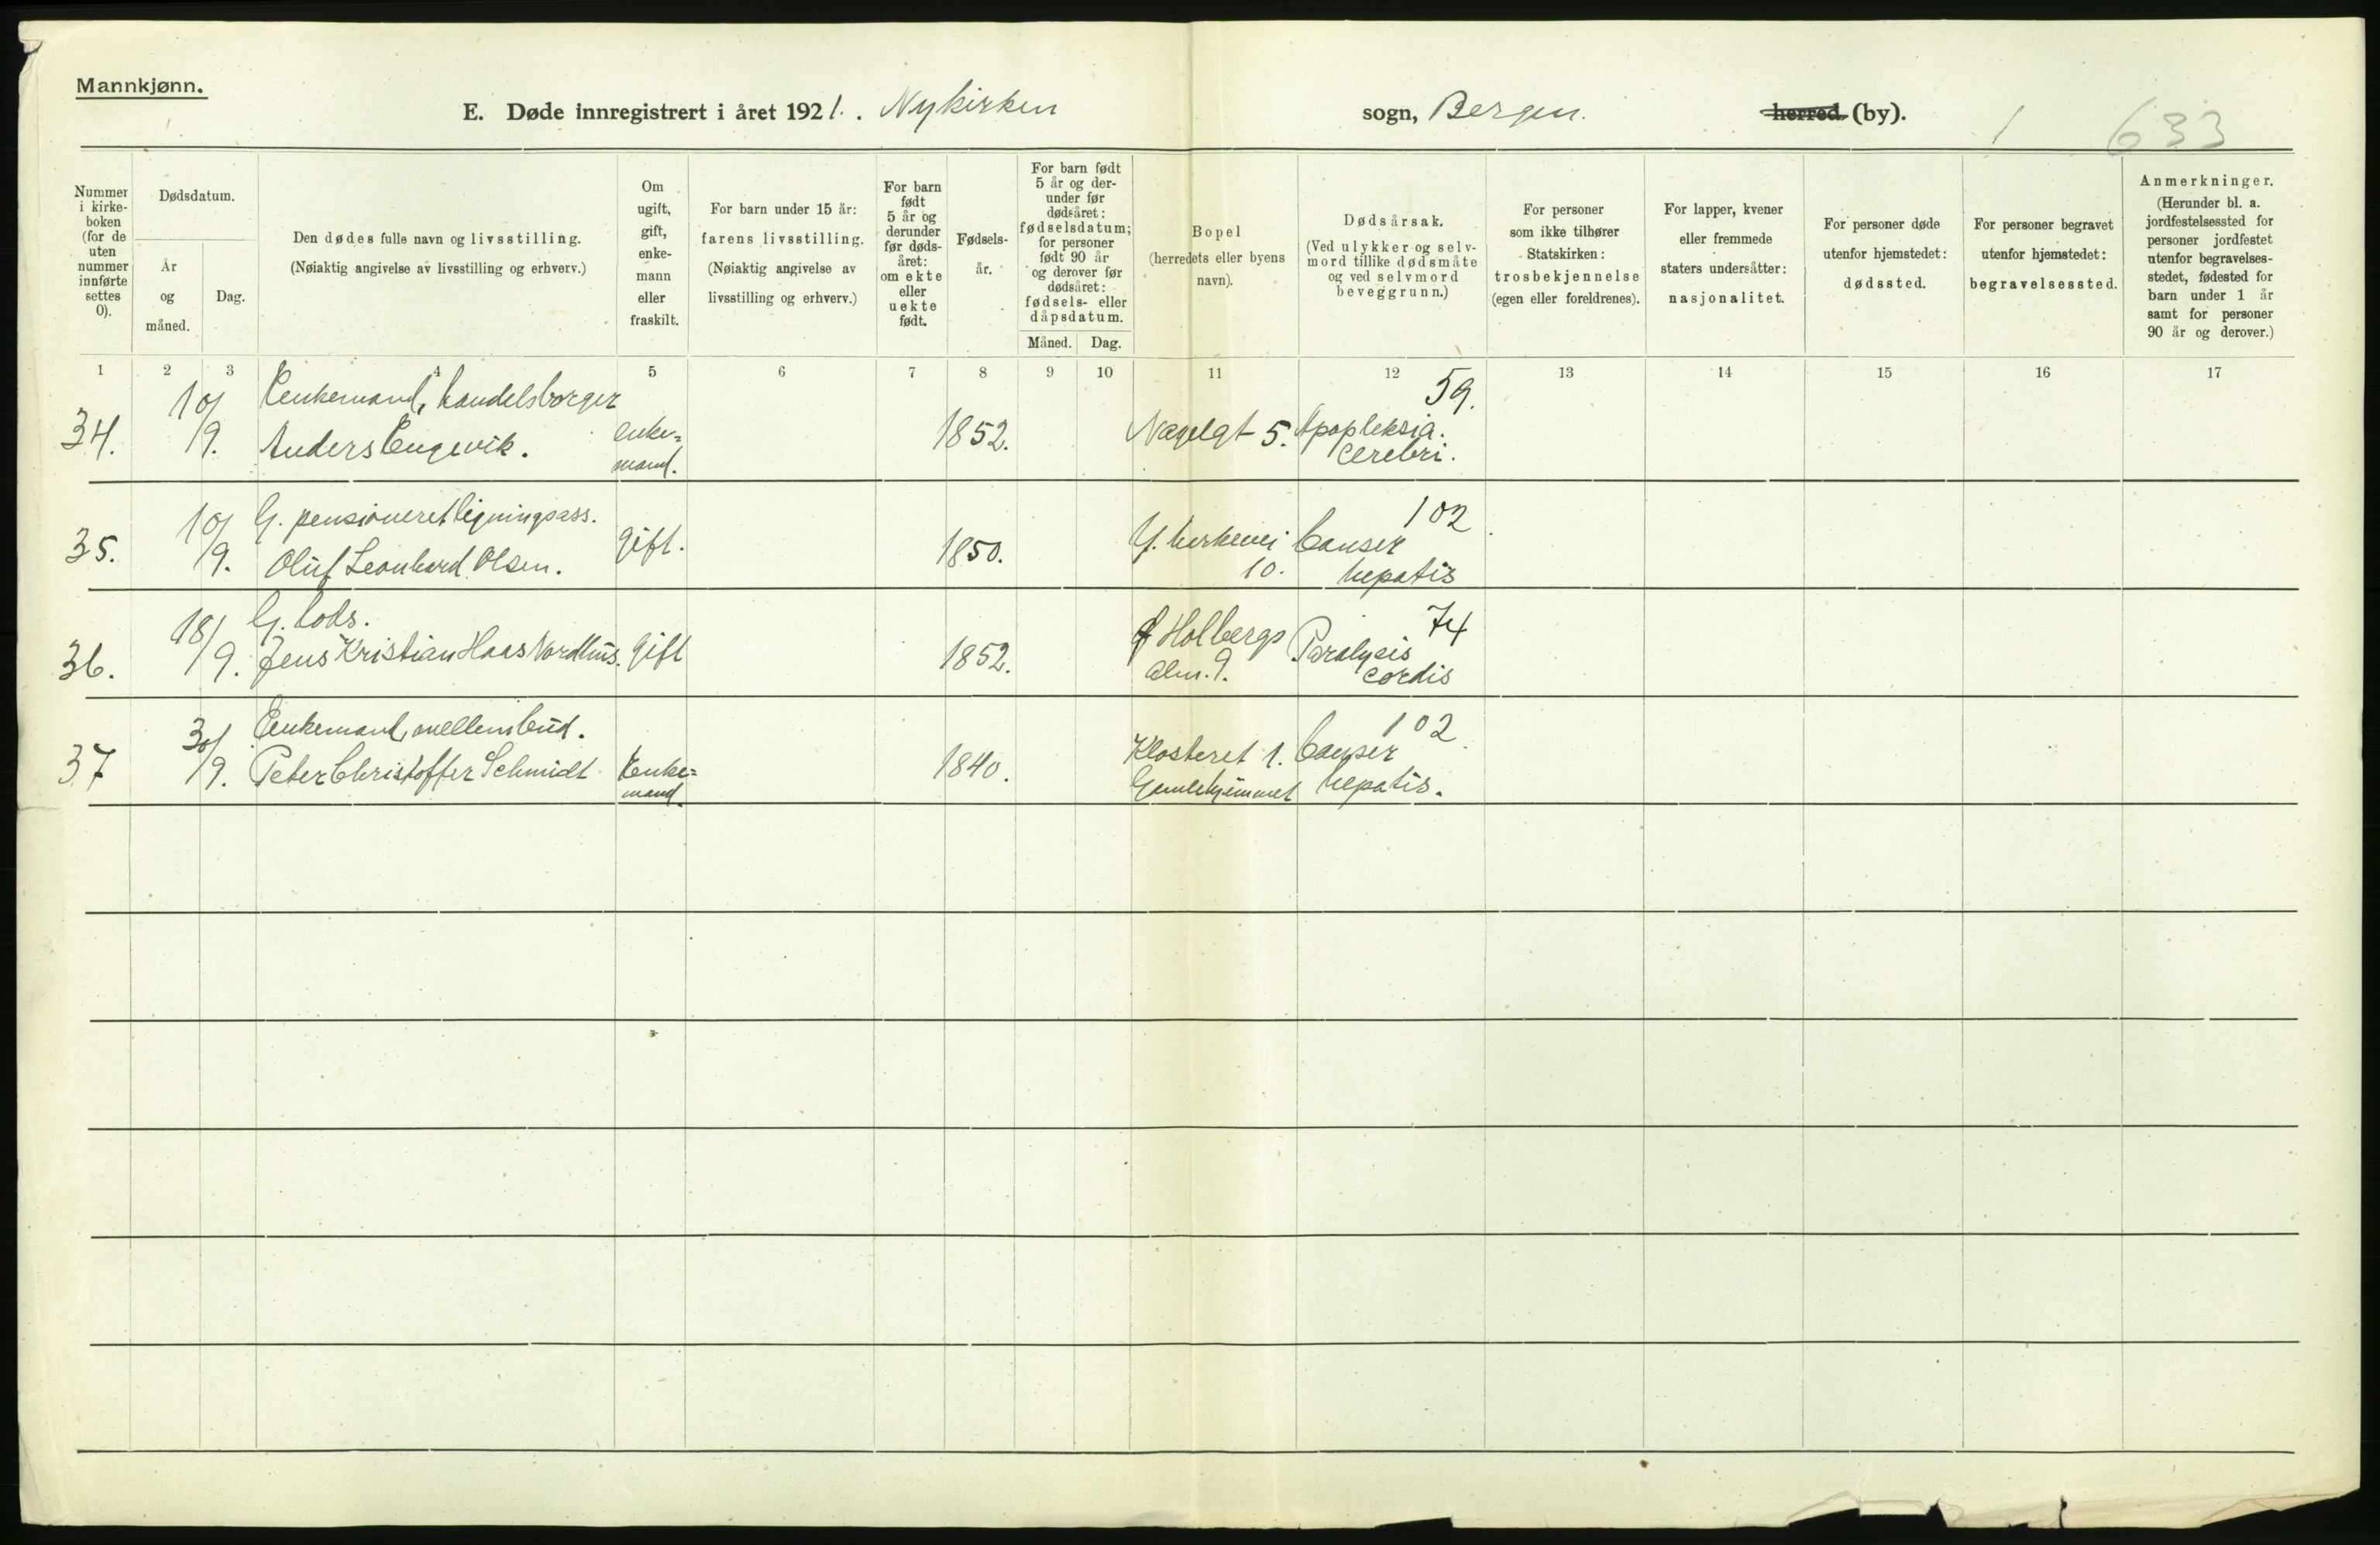 Mannkjønn.
E. Døde innregistrert i året 1921. Nykirken sogn, Bergen. herred (by). 1 633
Nummer i kirke-boken (for de uten nummer innførte settes 0).
Dødsdatum.
År og måned.
Dag.
Den dødes fulle navn og livsstilling.
(Nøiaktig angivelse av livsstilling og erhverv.)
Om ugift, gift, enke-mann eller fraskilt.
For barn under 15 år:
farens livsstilling.
(Nøiaktig angivelse av
livsstilling og erhverv.)
For barn født 5 år og derunder før døds-året: om ekte eller uekte født.
Fødsels-år.
For barn født 5 år og der-under før dødsåret: fødselsdatum; for personer født 90 år og derover før dødsåret: fødsels- eller dåpsdatum.
Måned. Dag.
Bopel
(herredets eller byens
navn).
Dødsårsak.
(Ved ulykker og selv-
mord tillike dødsmåte
og ved selvmord
beveggrunn.)
For personer
som ikke tilhører
Statskirken:
trosbekjennelse
(egen eller foreldrenes).
For lapper, kvener
eller fremmede
staters undersåtter:
nasjonalitet.
For personer døde
utenfor hjemstedet:
dødssted.
For personer begravet
utenfor hjemstedet:
begravelsessted.
Anmerkninger.
(Herunder bl. a.
jordfestelsessted for
personer jordfestet
utenfor begravelses-
stedet, fødested for
barn under 1 år
samt for personer
90 år og derover.)
1 2 3 4 5 6 7 8 9 10 11 12 13 14 15 16 17
10/ Enkemand, handelsborger 59.
34. /9. Anders Engevik. enke= 1852. Nægelgt 5. Apopleksia.
mand. Cerebri.
10/ G. pensioneret ligningsass. 102
35. /9. Oluf Leonhard Olsen. gift. 1850. Canser
10. hepatis
18/ G. Lods. 74
36. /9. Jens Kristian Haas Nordhus. gift 1852. Holbergs Paralysis
alm. 9. cordis
30/ Enkemand, 102
37 /9. Peter Christoffer Schmidt Enke= 1840. Klosteret 1. Canser
mand. Gamlehjemmet hepatis.